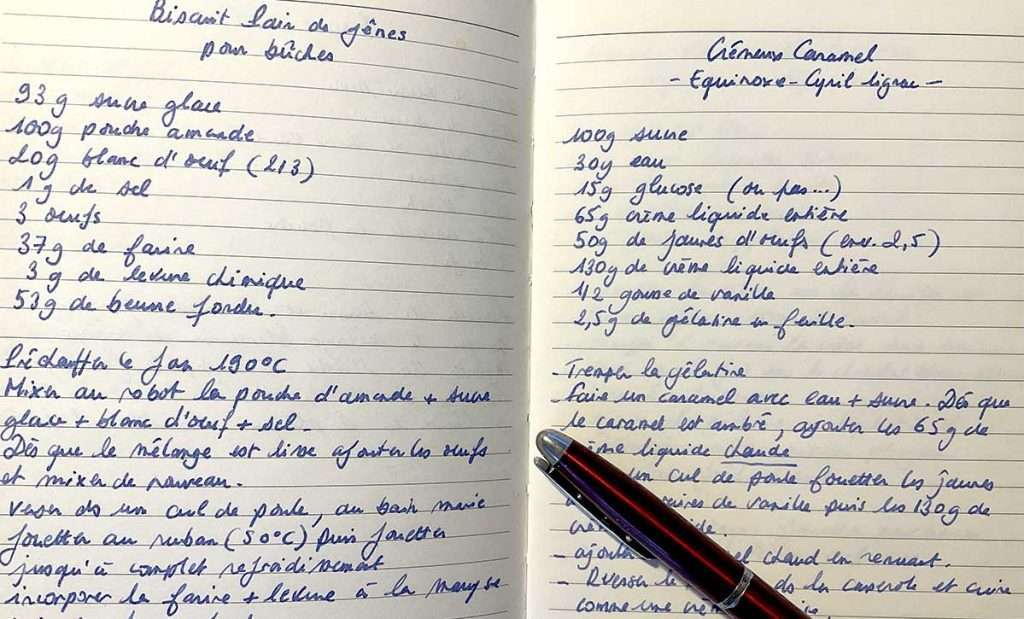 Biscuit pain de gênes
pour bûches
93 g sucre glace
100g poudre amande
20g blanc d'oeuf (2/3)
1 g de sel
3 oeufs
37g de farine
3 g de levure chimique
53g de beurre fondu.
Préchauffer le four 190°C
Mixer au robot la poudre d'amande + sucre
glace + blanc d'oeuf + sel.
Dès que le mélange est lisse ajouter les oeufs
et mixer de nouveau.
Verser ds un cul de poule, au bain marie
fouetter au ruban (50°C) puis fouetter
jusqu'à complet refroidissement
incorporer la farine + levure à la maryse
Crémeux Caramel
- Equinoxe - Cyril Lignac -
100g sucre
30g eau
15g glucose (ou pas...)
65g crème liquide entière
50g de jaunes d'oeufs (env. 2,5)
130g de crème liquide entière
1/2 gousse de vanille
2,5g de gélatine en feuille.
- Tremper la gélatine
- Faire un caramel avec eau + sucre. Dès que
le caramel est ambré, ajouter les 65g de
crème liquide chaude
un cul de poule fouetter les jaunes
de vanille puis les 130g de
- ajouter chaud en remuant.
- Reverser le ds la casserole et cuire
comme une